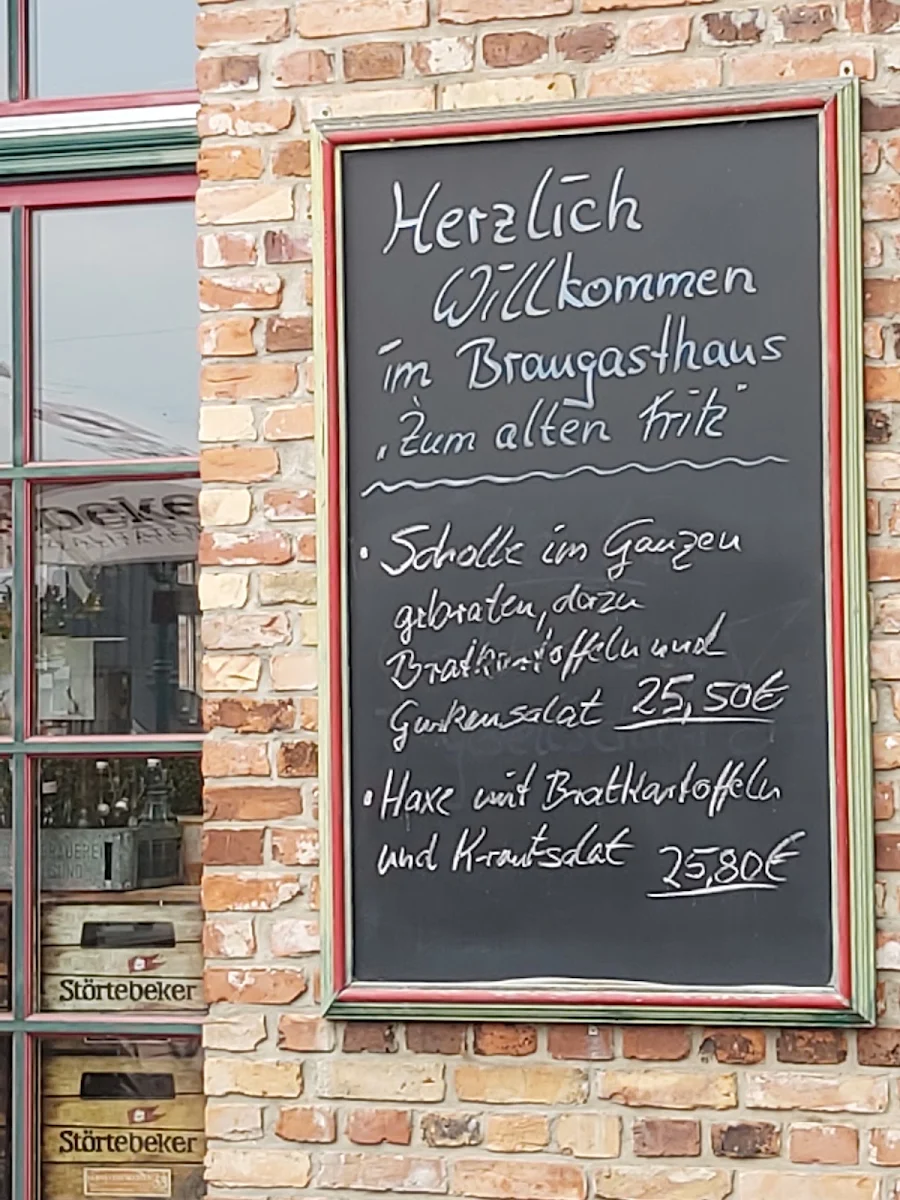 Herzlich
Willkommen
im Braugasthaus
„Zum alten Fritz"
• Scholle im Ganzen
gebraten, dazu
Bratkartoffeln und
Gurkensalat 25,50€
• Haxe mit Bratkartoffeln
und Krautsalat 25,80€
Störtebeker
Störtebeker